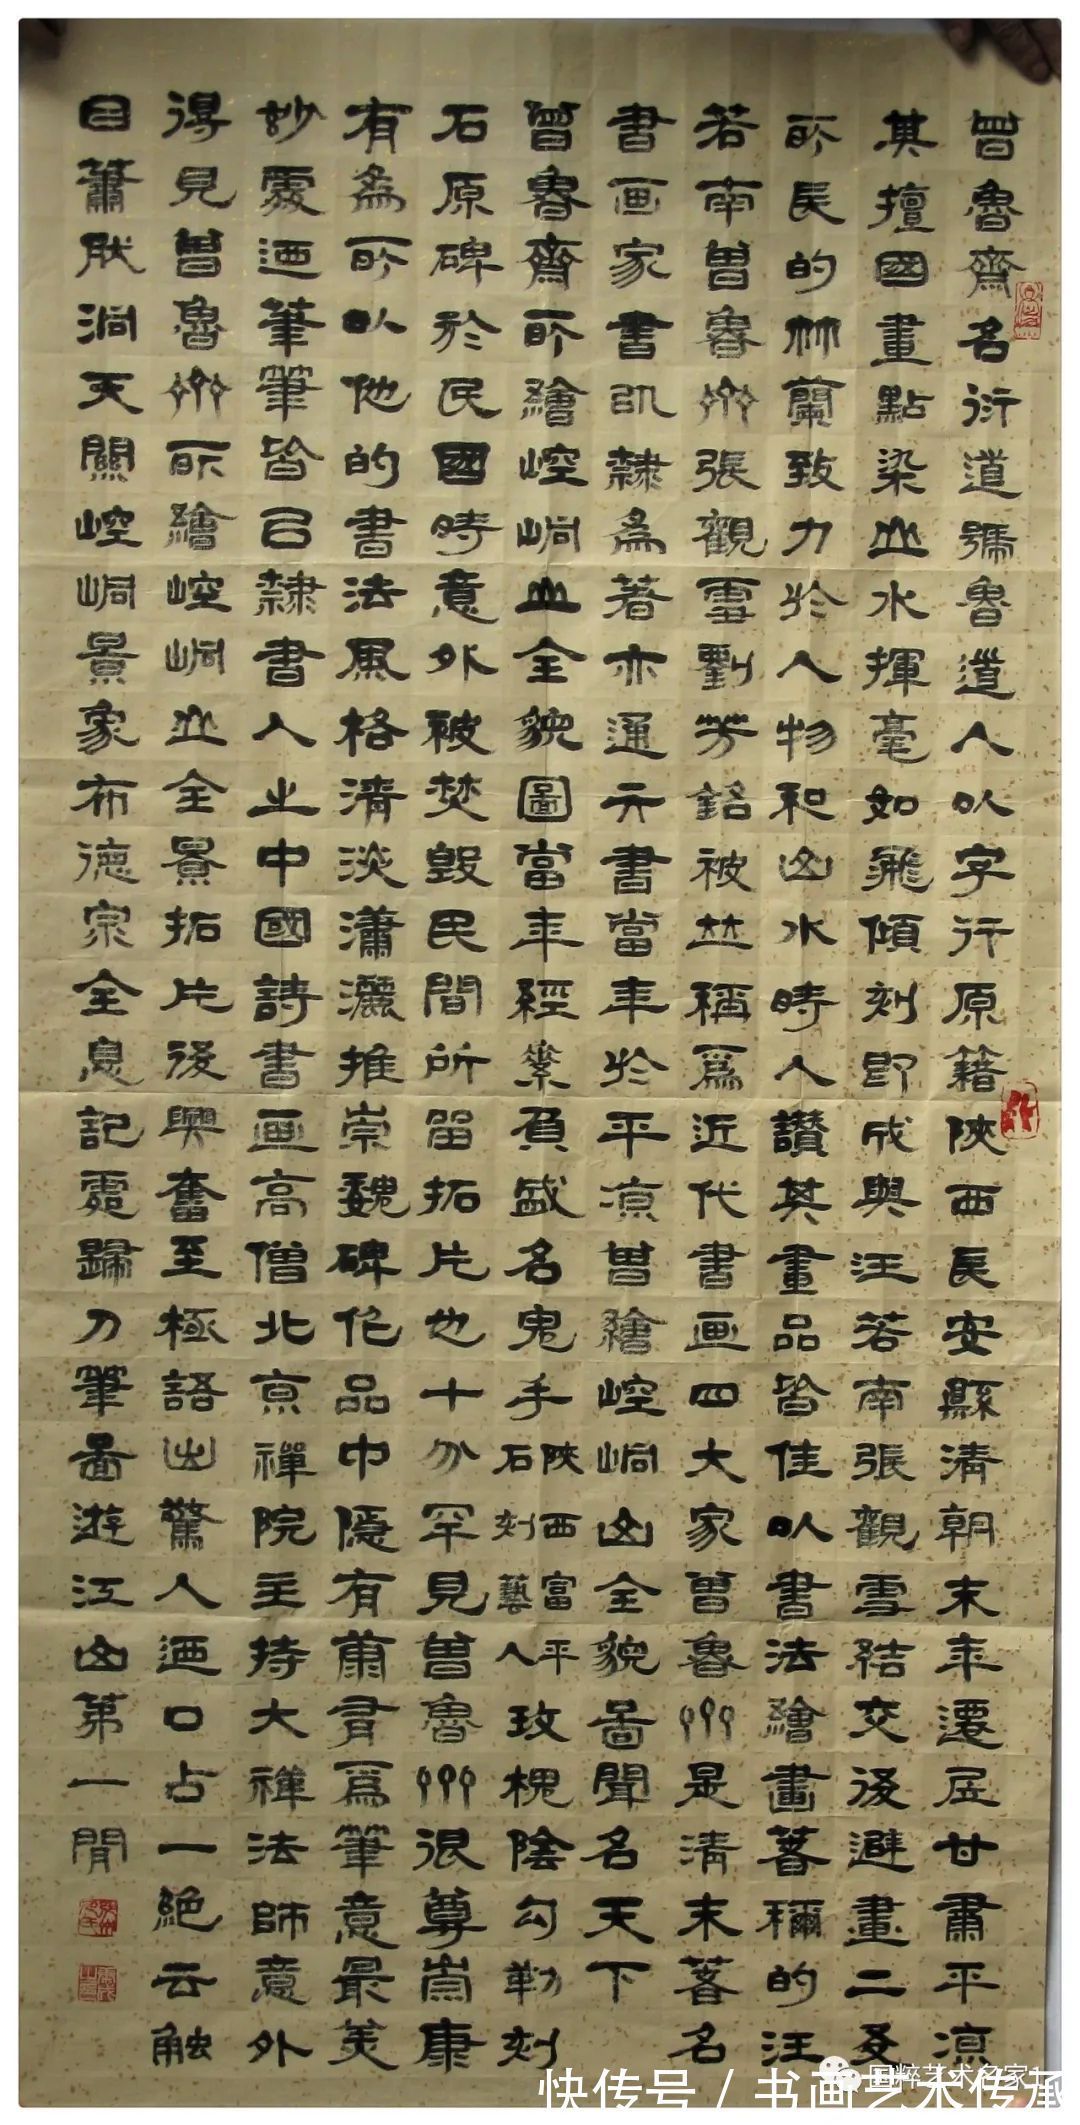 曾魯齋名衍道號魯道人以字行原籍陝西長安縣清朝末年遷居甘肅平凉
其擅國畫點染山水揮毫如飛傾刻即成與汪若南張觀雪結交後避畫二友
所長的竹蘭致力於人物和山水時人讚其畫品皆佳以書法繪畫著稱的汪
若南曾魯齋張觀雪劉芳銘被並稱爲近代書画四大家曾魯齋是清末著名
書画家書以隸為著亦通六書當年於平凉曾繪崆峒山全貌圖聞名天下
曾魯齋所繪崆峒山全貌圖當年經素負盛名鬼手陝西富平石刻藝人玫槐陰勾勒刻
石原碑於民國時意外被焚毀民間所留拓片也十分罕見曾魯齋很尊崇康
有為所以他的書法風格清淡瀟灑推崇魏碑作品中隱有康有爲筆意最美
妙處迺筆筆皆以隸書入之中國詩書画高僧北京禪院主持大禅法師意外
得見曾魯齋所繪崆峒山全景拓片後興奮至極語出驚人迺口占一絕云触
目蕭然洞天關崆峒景象布德宗全息記靈歸刀筆圖遊江山第一閒
国粹艺术名家1
快传号/书画艺术传承